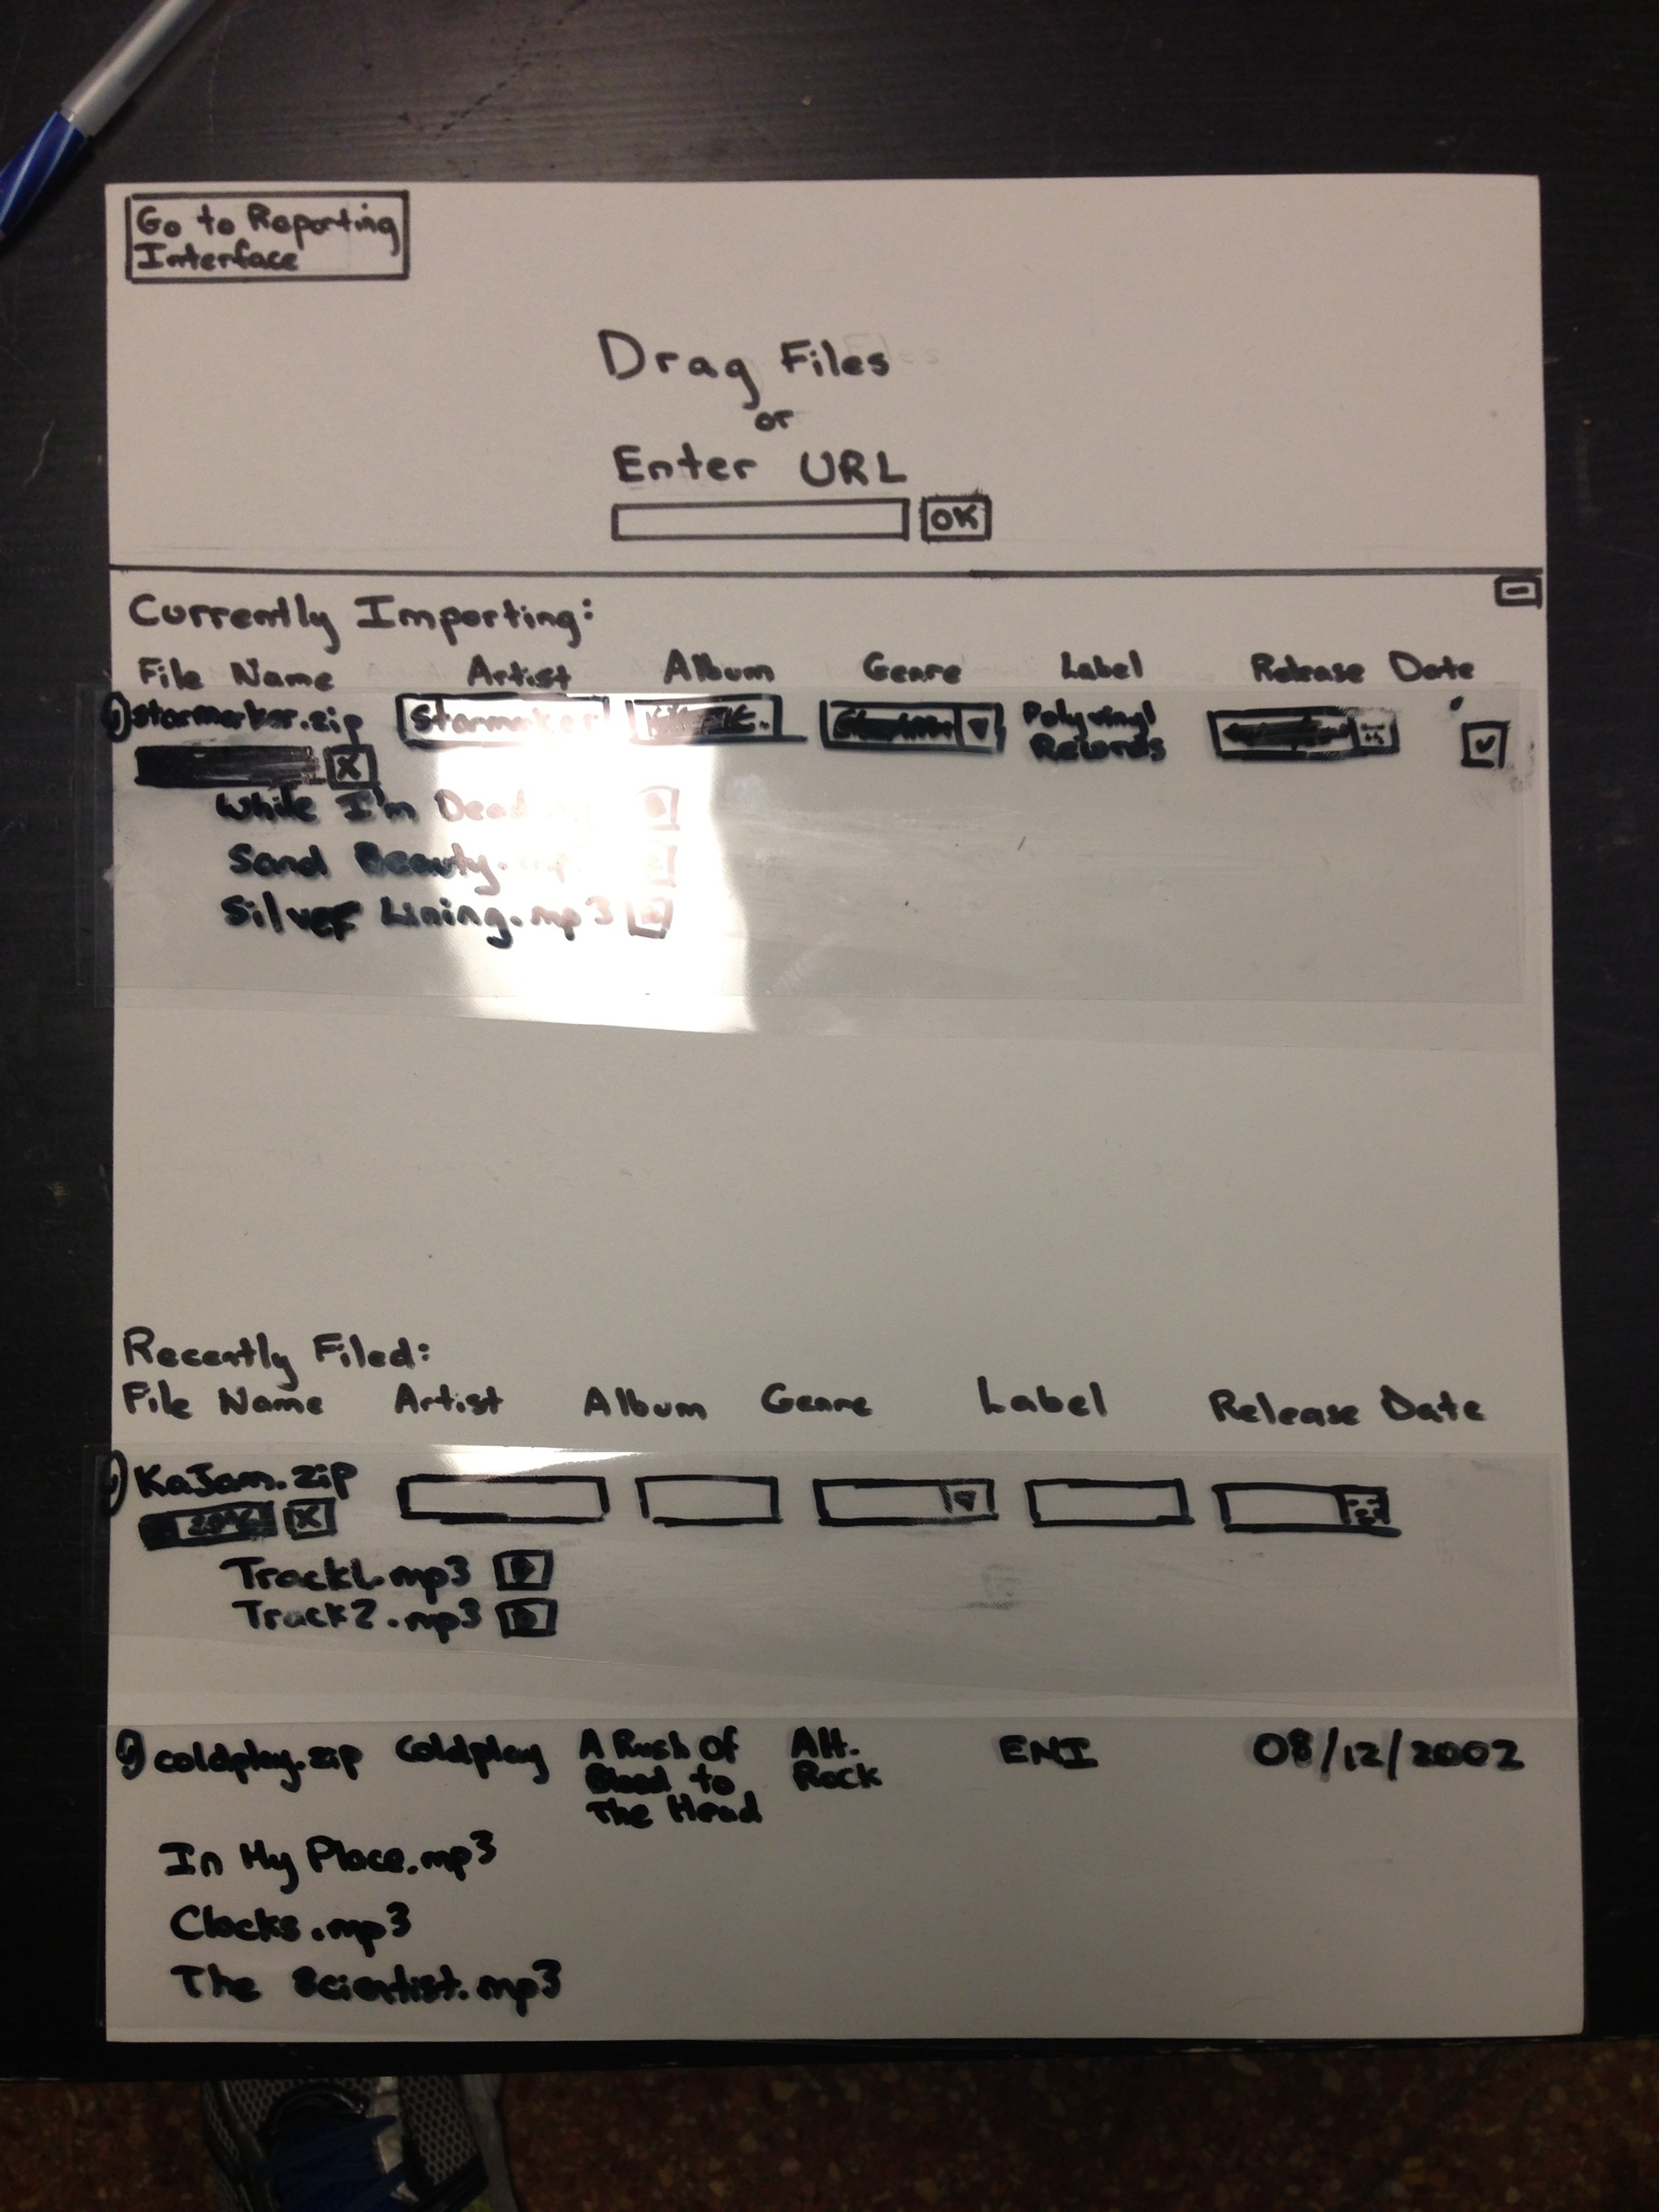 Go to Reporting
Interface
Drag Files
or
Enter URL
OK
Currently Importing:
File Name Artist Album Genre Label Release Date
starmarker.zip Starmarker Polyvinyl
Records
X
While I'm Dead
Sand Beauty.
Silver Lining.mp3
Recently Filed:
File Name Artist Album Genre Label Release Date
KaJam.zip
X
Track1.mp3
Track2.mp3
coldplay.zip Coldplay A Rush Of Alt. EMI 08/12/2002
Blood to Rock
The Head
In My Place.mp3
Clocks.mp3
The Scientist.mp3